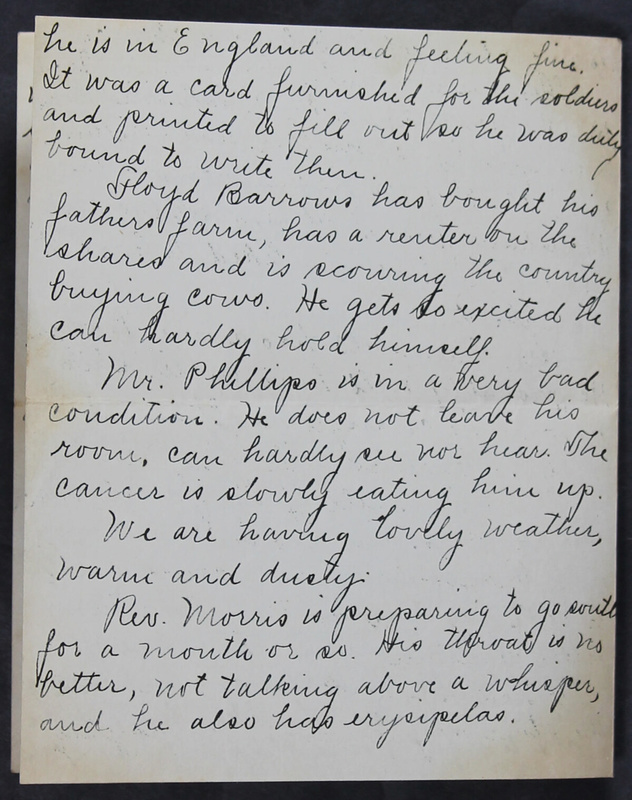 he is in England and feeling fine.
It was a card furnished for the soldiers
and printed to fill out so he was duty
bound to write then.
Floyd Barrows has bought his
fathers farm, has a renter on the
shares and is scouring the country
buying cows. He gets so excited he
can hardly hold himself.
Mr. Phillips is in a very bad
condition. He does not leave his
room, can hardly see nor hear. The
cancer is slowly eating him up.
We are having lovely weather,
warm and dusty.
Rev. Morris is preparing to go south
for a month or so. His throat is no
better, not talking above a whisper,
and he also has erysipelas.